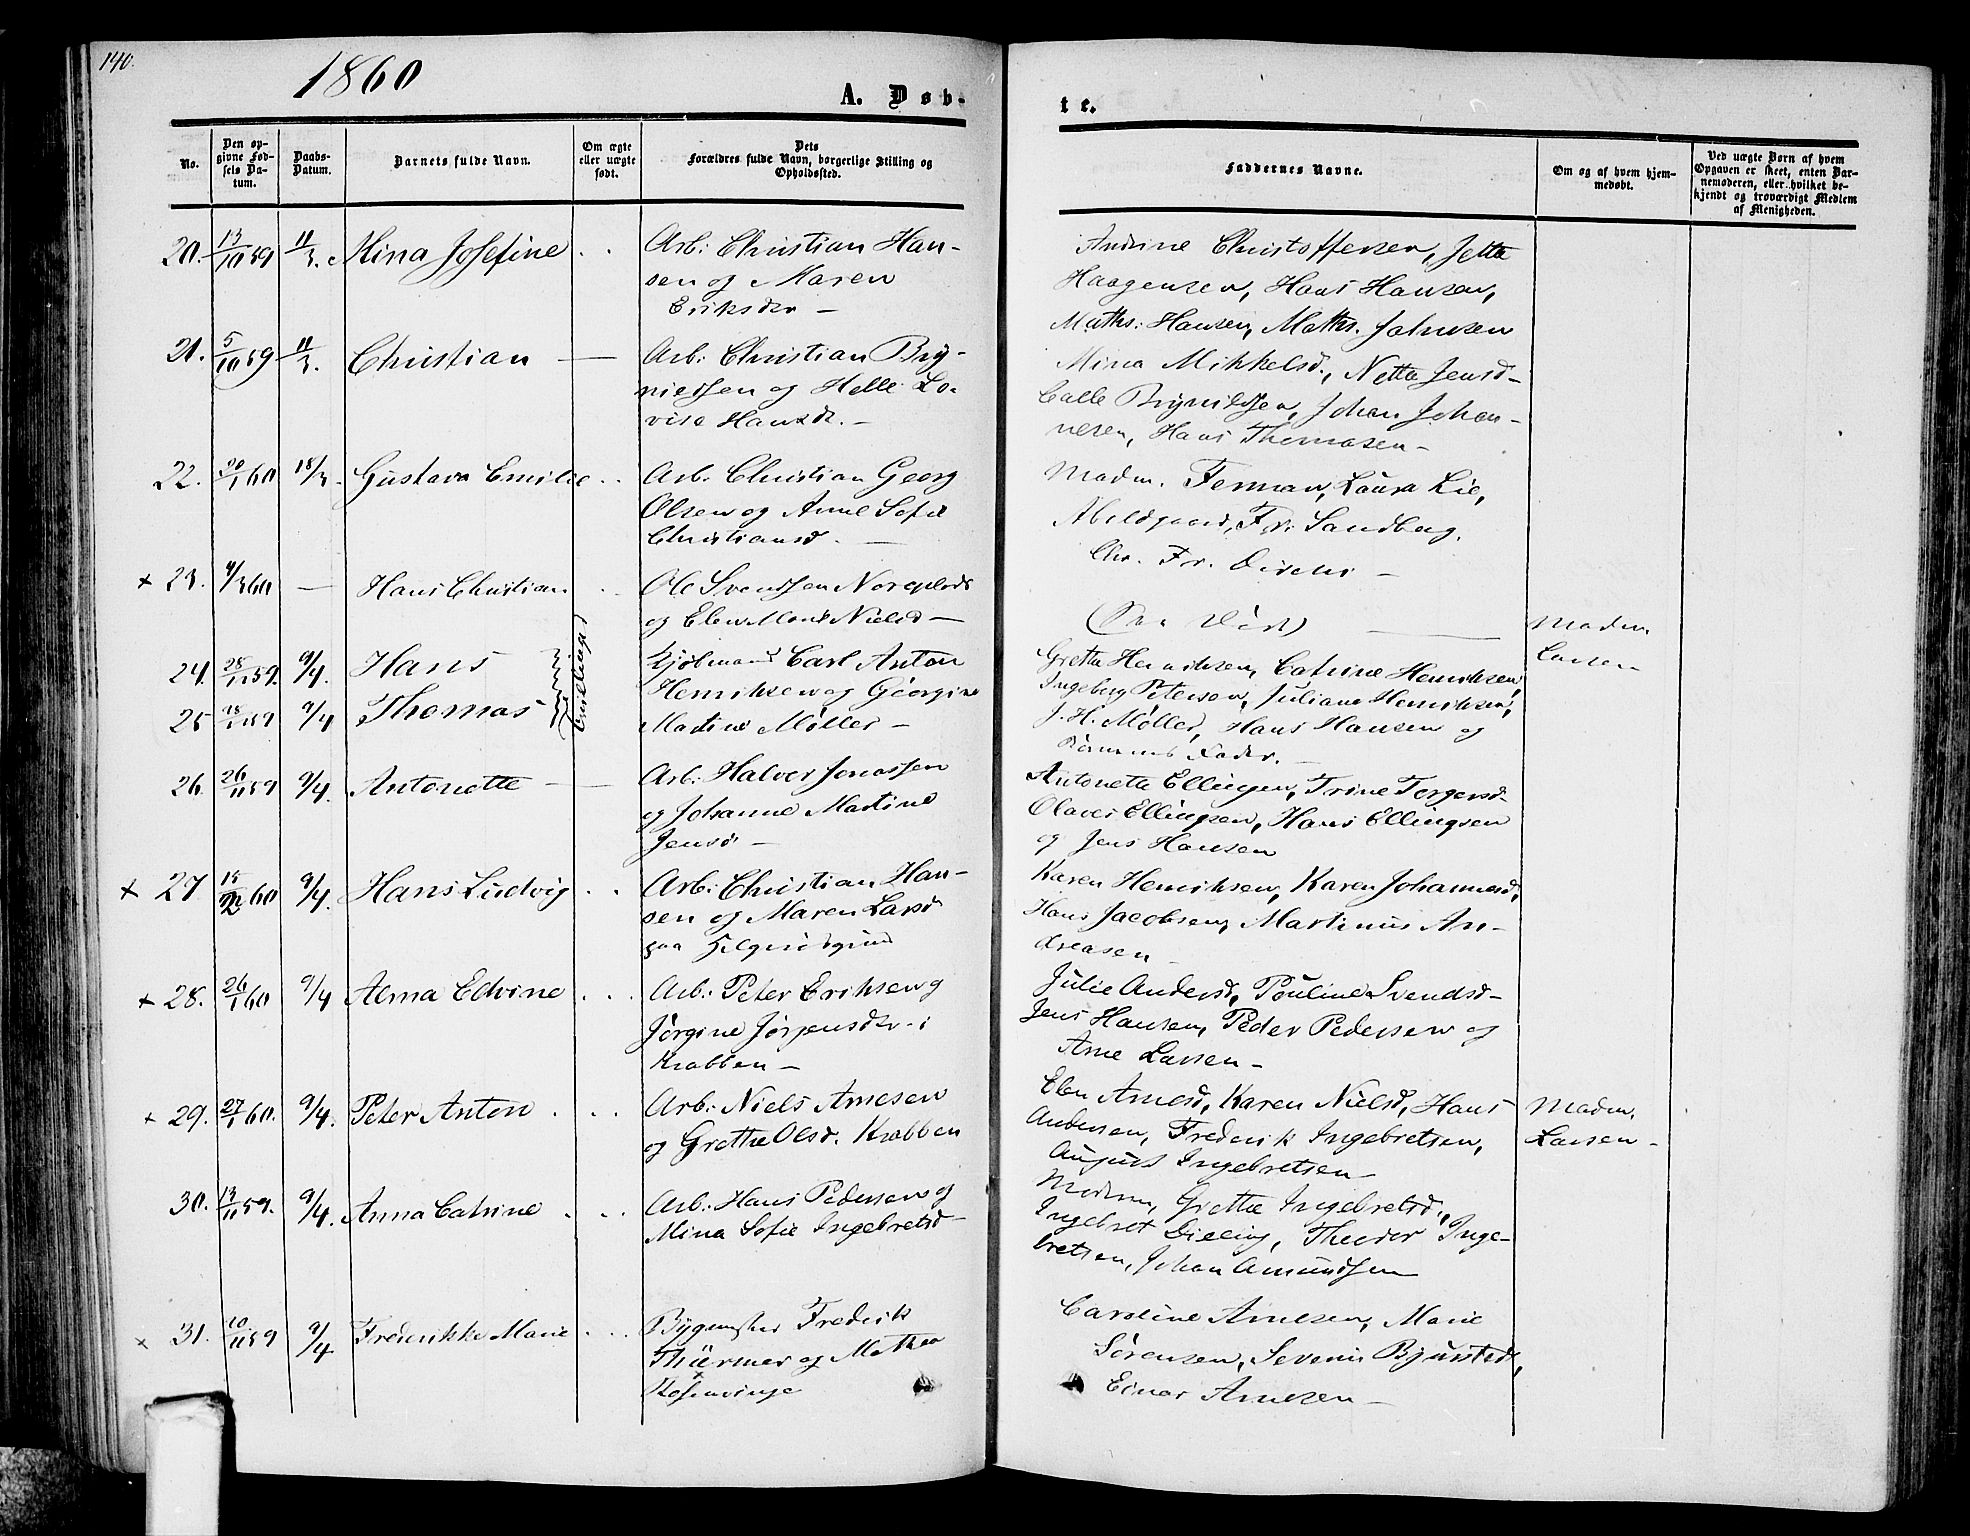 140.
1860
A. Døb-
te.
No.
Den opgivne Fødsels Datum.
Daabs-Datum.
Barnets fulde Navn.
Om ægte eller uægte født.
Dets Forældres fulde Navn, borgerlige Stilling og Opholdssted.
Faddernes Navne.
Om og af hvem hjemmedøbt.
Ved uægte Børn af hvem Opgaven er skeet, enten Barnemoderen, eller hvilket bekjendt og troværdigt Medlem af Menigheden.
20. 13/10 59 11/3. Mina Josefine
Arb: Christian Han-
sen og Maren
Eriksdr —
Andrine Christoffersen, Jetta
Haagensen, Hans Hansen,
Maths: Hansen, Maths. Johnsen
21. 5/10 59 11/3. Christian —
Arb: Christian Bry-
nildsen og Helle Lo-
vise Hansdr. —
Mina Mikkelsd., Netta Jensd-
Calle Brynildsen, Johan Johan-
nesen, Hans Thomasen —
22. 20/1 60 18/3. Gustava Emilie
Arb. Christian Georg
Olsen og Anne Sofie
Christiansd. —
Madm. Ferman, Laura Lie,
Abildgaard, Fr. Sandberg,
Chr. Fr.
× 23. 4/3 60 — Hans Christian
Ole Svendsen
og Elen Marie Nielsd —
Madm.
Larsen
24. 28/11 59. 9/4. Hans
25 28/11 59 9/4 Thomas
Tvillinger
Kjøbmand Carl Anton
Henriksen og Georgine
Martine Møller —
Grethe Henriksen, Catrine Henriksen,
Ingeborg Petersen, Juliane Henriksen,
J. H. Møller, Hans Hansen og
Børnenes Fader. —
26. 26/11 59 9/4. Antonette —
Arb: Halvor Jonassen
og Johanne Martine
Jensd —
Antonette Ellingsen, Trine Torgersd-
Olaves Ellingsen, Hans Ellingsen
og Jens Hansen
× 27 15/2 60 9/4. Hans Ludvig
Arb: Christian Han-
sen og Maren Larsd
paa
Karen Henriksen, Karen Johannesd,
Hans Jacobsen, Martinus An-
dreasen —
× 28. 26/1 60 9/4 Alma Edvine
Arb: Peter Eriksen og
Jørgine Jørgensdr. i
Krabben —
Julie Andersd, Pouline Svendsd-
Jens Hansen, Peder Pedersen og
Arne Larsen —
× 29. 27/1 60. 9/4. Peter Anton
Arb: Niels Arnesen
og Grethe Olsd. Krabben
Elen Arnesd, Karen Nielsd, Hans
Andersen, Frederik Ingebretsen,
August Ingebretsen —
Madm.
Larsen —
30. 13/11 59. 9/4. Anna Catrine
Arb: Hans Pedersen og
Mina Sofie Ingebretsd —
Modren, Grethe Ingebretsd.,
Ingebret Theodor Inge-
bretsen, Johan Amundsen
× 31. 10/11 59 9/4 Frederikke Marie
Bygmester Frederik
Thürmer og Mathea
Rosenvinge
Caroline Arnesen, Marie
Sørensen, Severin Bjurstedt,
Einar Arnesen —